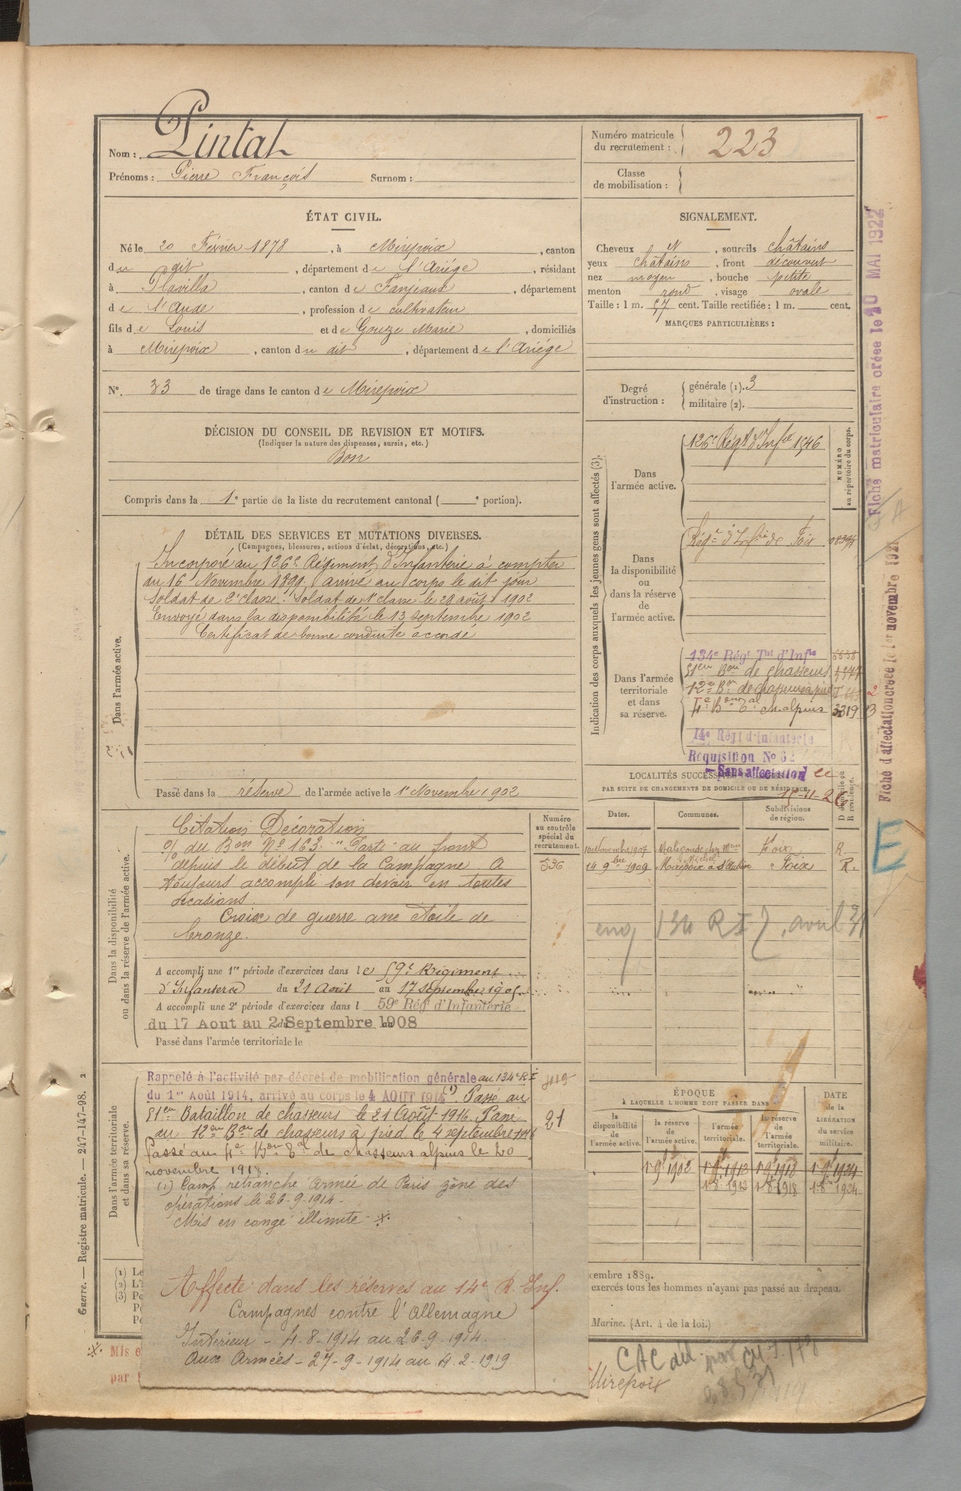 Nom : Pintat
Prénoms : Pierre François Surnom :
Numéro matricule du recrutement : 223
Classe de mobilisation :
ÉTAT CIVIL.
Né le 20 Février 1878, à Mirepoix, canton
du dit, département de l'Ariège, résidant
à Plavilla, canton de Fanjeaux, département
de l'Aude, profession de cultivateur
fils de Louis et de Gouze Marie, domiciliés
à Mirepoix, canton du dit, département de l'Ariège
N° 33 de tirage dans le canton de Mirepoix
SIGNALEMENT.
Cheveux N, sourcils châtains
yeux châtains, front découvert
nez moyen, bouche petite
menton rond, visage ovale
Taille : 1 m. 57 cent. Taille rectifiée : 1 m. cent.
MARQUES PARTICULIÈRES :
Degré d'instruction : générale (1). 3
militaire (2).
DÉCISION DU CONSEIL DE REVISION ET MOTIFS.
(Indiquer la nature des dispenses, sursis, etc.)
Bon
Compris dans la 1e partie de la liste du recrutement cantonal ( portion).
DÉTAIL DES SERVICES ET MUTATIONS DIVERSES.
(Campagnes, blessures, actions d'éclat, décorations, etc.)
Dans l'armée active.
Incorporé au 126e Régiment d'Infanterie à compter
du 16 Novembre 1899, arrivé au corps le dit jour
Soldat de 2e classe. Soldat de 1e classe le 29 août 1902
Envoyé dans la disponibilité le 13 septembre 1902
Certificat de bonne conduite accordé
Passé dans la réserve de l'armée active le 1er Novembre 1902
Indication des corps auxquels les jeunes gens sont affectés (3).
NUMÉRO au répertoire du corps.
Dans l'armée active.
126e Régt d'Infie 1546
Dans la disponibilité ou dans la réserve de l'armée active.
Régt d'Infie de Foix
Dans l'armée territoriale et dans sa réserve.
134e Régt Tal d'Infie
51em Bon de chasseurs
12e Bon de chasseurs à pied
14e Régt d'Infanterie
Réquisition No 62
Sans affectation
3319
LOCALITÉS SUCCESSIVES
PAR SUITE DE CHANGEMENTS DE DOMICILE OU DE RÉSIDENCE.
Dates. Communes. Subdivisions de région. D domicile ou R résidence.
Foix R.
14 9bre 1909 Mirepoix Foix R.
134 RI 7 avril
Dans la disponibilité ou dans la réserve de l'armée active.
Numéro au contrôle spécial du recrutement.
Citation Décoration
o/ du Bon No 163. "Parti au front
depuis le début de la Campagne. A
toujours accompli son devoir en toutes
occasions
Croix de guerre avec étoile de
bronze.
A accompli une 1re période d'exercices dans le 59e Régiment
d'Infanterie du 21 Août au 17 septembre 1905
A accompli une 2e période d'exercices dans l 59e Rég d'Infanterie
du 17 Aout au 2 Septembre 1908
Passé dans l'armée territoriale le
Dans l'armée territoriale et dans sa réserve.
Rappelé à l'activité par décret de mobilisation générale au 134e RI
du 1er Août 1914, arrivé au corps le 4 AOUT 1914 (1) Passé au
51em Bataillon de chasseurs le 21 Août 1916. Passé
au 12em Bon de chasseurs à pied le 4 septembre 1918
Passé au 4e Bon Tal de chasseurs alpins le 20
novembre 1918.
(1) Camp retranché Armée de Paris zône des
opérations le 26.9.1914.
Mis en congé illimité
21
Affecté dans les réserves au 14e R. Inf.
Campagnes contre l'Allemagne
Intérieur - 4-8-1914 au 26-9-1914.
Aux Armées - 27-9-1914 au 4-2-1919
ÉPOQUE
À LAQUELLE L'HOMME DOIT PASSER DANS
la disponibilité de l'armée active. la réserve de l'armée active. l'armée territoriale. la réserve de l'armée territoriale. DATE de la LIBÉRATION du service militaire.
cembre 1889.
exercés tous les hommes n'ayant pas passé au drapeau.
Marine. (Art. 4 de la loi.)
Mirepoix
Mis e
par
Guerre. — Registre matricule. — 247-147-98.
Fiche matriculaire créée le 20 MAI 1922
Fiche d'affectation créée le 1er novembre 192
E